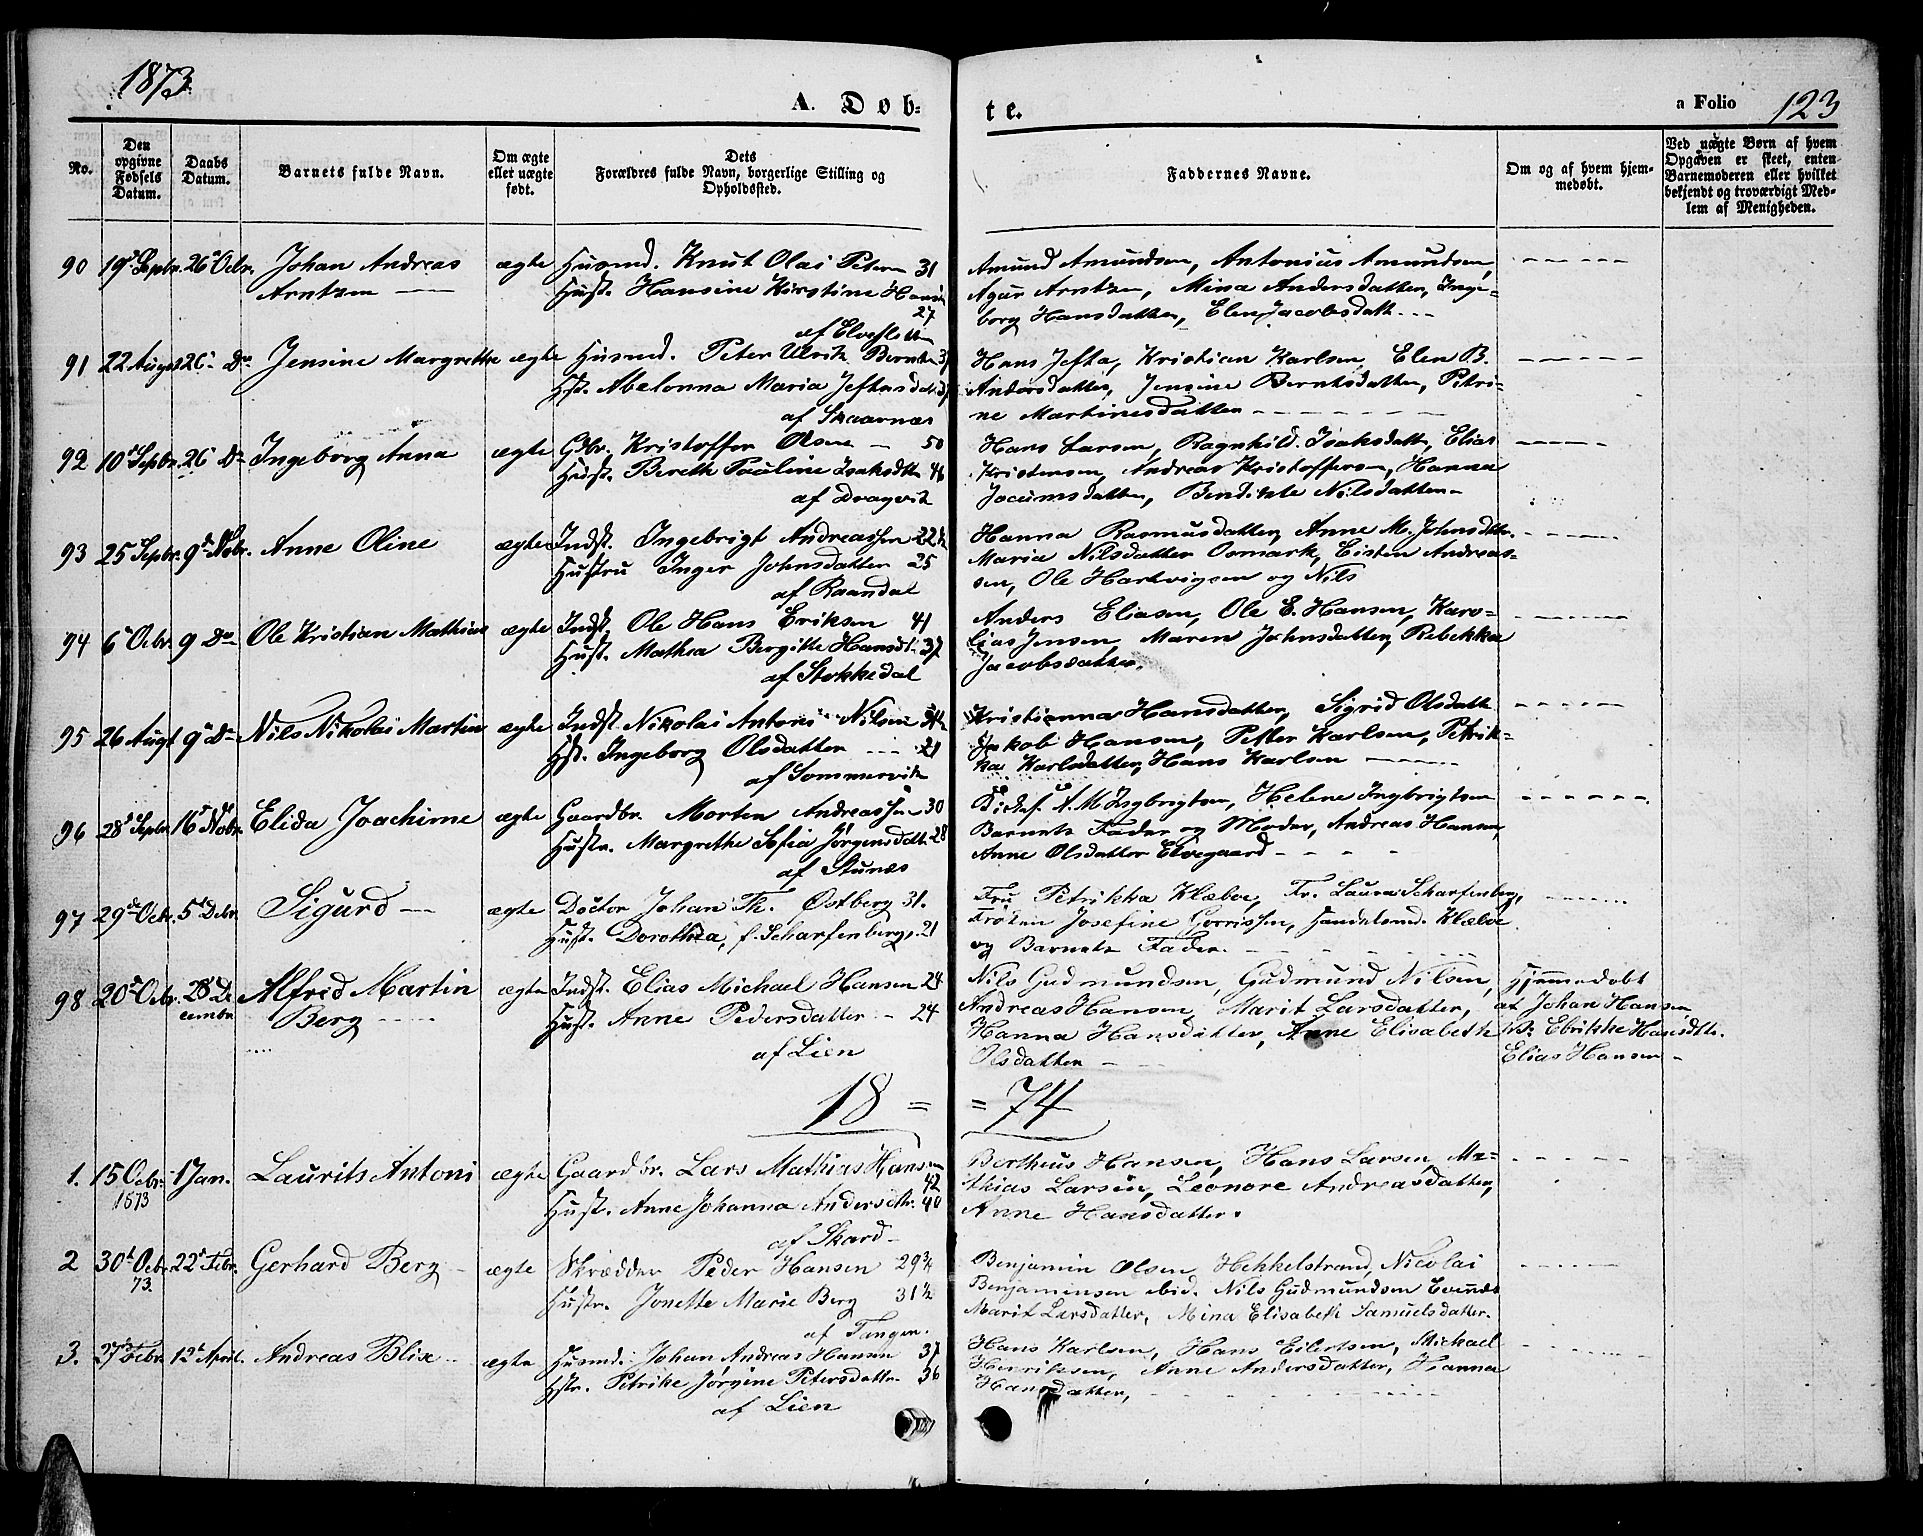 1873
A. Døb-
te.
a Folio 123
No.
Den opgivne Fødsels Datum.
Daabs Datum.
Barnets fulde Navn.
Om ægte eller uægte født.
Dets Forældres fulde Navn, borgerlige Stilling og Opholdssted.
Faddernes Navne.
Om og af hvem hjemmedøbt.
Ved uægte Børn af hvem Opgaven er skeet, enten Barnemoderen eller hvilket bekjendt og troværdigt Medlem af Menigheden.
90 19d Septbr. 26d Octbr. Johan Andreas ægte Husmd. Knut Olai Petersen 31
Arntzen Hust. Hansine Kirstine
27
af Elvesletten
Amund Amundsen, Antonius Amundsen,
Agur Arntzen, Mina Andersdatter, Inge-
borg Hansdatter, Elen Jacobsdatt.
91 22 August 26 Do Jensine Margrethe ægte Husmd. Peter Ulrik Berntsen 37
Hst. Abelonna Maria Jeftasdatt. 37
af Skaarnæs
Hans Jefta, Kristian Karlsen, Elen B.
Andersdatter, Jensine Berntsdatter, Petri-
ne Martinesdatter
92 10d Septbr. 26 Do Ingeborg Anna ægte Gbr. Kristoffer Olsen 50
Hust. Bereth Pauline Isaksdtr 46
af Dragvik
Hans Larsen, Ragnhild Isaksdatt, Elias
Kristensen, Andreas Kristoffersen, Hanna
Jocumsdatter, Bendikte Nilsdatter
93 25 Septbr. 9d Nobr. Anne Oline ægte Indst. Ingebrigt Andreassen 22½
Hustru Inger Johnsdatter 25
af Raandal
Hanna Rasmusdatter, Anne M. Johnsdtr.
Maria Nilsdatter Osmark, Eisten Andreas-
sen, Ole Hartvigsen og Nils
94 6 Octbr. 9 Do Ole Kristian Mathias ægte Indst. Ole Hans Eriksen 41
Hust. Mathea Bergitte Hansdt. 37
af Stokkedal
Anders Eliasen, Ole E. Hansen, Karo-
lias Jensen, Maren Johnsdatter, Rebekka
Jacobsdatter.
95 26 Augt 9d Do Nils Nikolai Martin ægte Indst. Nikolai Antoni Nilsen
Hst. Ingeborg Olsdatter 21
af Sommervik
Kristianna Hansdatter, Sigrid Olsdatt
Jakob Hansen, Petter Karlsen, Petrik-
ka Karlsdatter, Hans Karlsen
96 28d Septbr. 16d Nobr. Elida Joachime ægte Gaardbr. Morten Andreassen 30
Hustr. Margrethe Sofia Jørgensdatt. 28
af Stunæs
N. M. Ingbrigtsen, Helene Ingbrigtsen
Barnets Fader og Moder, Andreas Hansen,
Anne Olsdatter Elvegaard
97 29de Octr. 5d Decbr. Sigurd ægte Doctor Johan Th. Østberg 31.
Hust. Dorothea, f. Scharfenberg, 21
Fru Petrikka Klæboe, Fr. Laura Scharfenberg,
Frøken Josefine Gorrissen, Handelsmd. Klæboe
og Barnets Fader.
98 20d Octbr. 28d De-
cembr. Alfred Martin ægte Indst. Elias Michael Hansen 24
Berg Hust. Anne Pedersdatter 24
af Lien
Nils Gudmundsen, Gudmund Nilsen,
Andreas Hansen, Marit Larsdatter,
Hanna Hansdatter, Anne Elisabeth
Olsdatter
Hjemmedøbt
af Johan Hansen
Elias Hansen
18 = = 74
1. 15 Octbr. 1873 1 Jan. Laurits Antoni ægte Gaardbr. Lars Mathias Hansen
42
Hust. Anne Johanna Andersdtr. 40
af Skard
Bertheus Hansen, Hans Larsen, Ma-
thias Larsen, Leonore Andreasdatter,
Anne Hansdatter.
2 30d Octbr. 73. 22d Febr. Gerhard Berg ægte Skrædder Peder Hansen 29¾
Hustr. Jonette Marie Berg 31½
af Tangen.
Benjamin Olsen, Hekkelstrand, Nicolai
Benjaminsen ibid. Nils Gudmundsen Evenæs
Marit Larsdatter, Mina Elisabeth Samuelsdatter.
3. 27d Febr. 12d April. Andreas Blix ægte Husmd. Johan Andreas Hansen 37
Hstr. Petrike Jørgine Petersdattr. 36
af Lien
Hans Karlsen, Hans Eilertsen, Mickael
Henriksen, Anne Andersdatter, Hanna
Hansdatter,